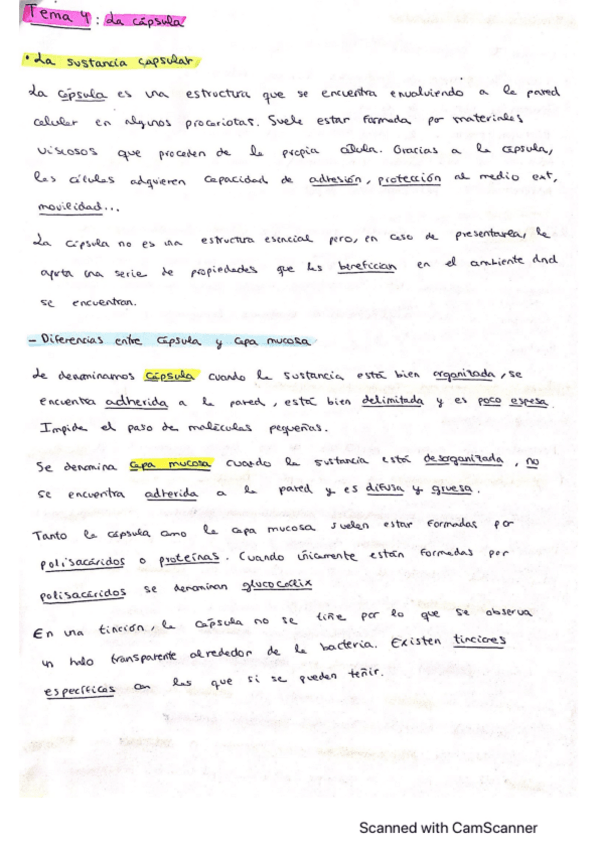 Tema 4: La cápsula
• La sustancia capsular
La cápsula es una estructura que se encuentra envolviendo a la pared
celular en algunos procariotas. Suele estar formada por materiales
viscosos que proceden de la propia célula. Gracias a la cápsula,
las células adquieren capacidad de adhesión, protección al medio ext,
movilidad...
La cápsula no es una estructura esencial pero, en caso de presentarla, le
aporta una serie de propiedades que las benefician en el ambiente dnd
se encuentran.
- Diferencias entre cápsula y capa mucosa
Le denominamos cápsula cuando la sustancia está bien organizada, se
encuentra adherida a la pared, está bien delimitada y es poco espesa.
Impide el paso de moléculas pequeñas.
Se denomina capa mucosa cuando la sustancia está desorganizada, no
se encuentra adherida a la pared y es difusa y gruesa.
Tanto la cápsula como la capa mucosa suelen estar formadas por
polisacáridos o proteínas. Cuando únicamente están formadas por
polisacáridos se denominan glucocálix
En una tinción, la cápsula no se tiñe por lo que se observa
un halo transparente alrededor de la bacteria. Existen tinciones
específicas con las que si se pueden teñir.
Scanned with CamScanner